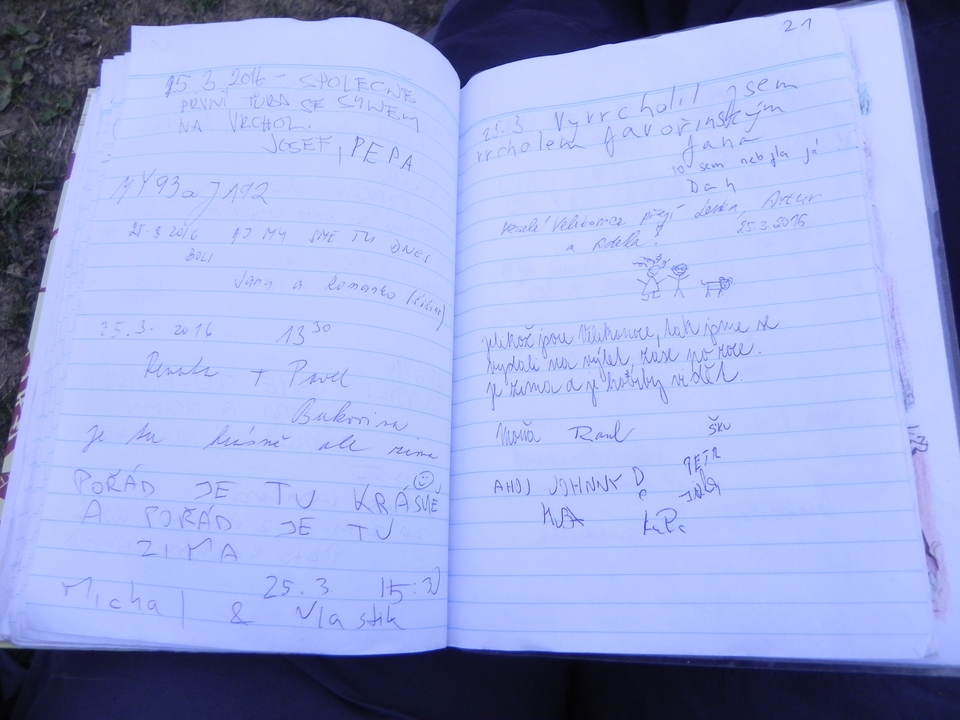 25.3.2016 – SPOLEČNĚ
PRVNÍ TÚRA SE SYNEM
NA VRCHOL.
JOSEF, PEPA
25.3 2016 AJ MY SME TU DNES
BOLI
Jana a Romanko
25.3. 2016 13 30
Renata + Pavel
Bukovina
je tu krásně ale zima
POŘÁD JE TU KRÁSNĚ
A POŘÁD JE TU
ZIMA
25.3 15:30
Michal & Vlastik
21
25.3 Vyvrcholil jsem
vrcholem favořinským
Jana
to sem nebyla já
Dan
Veselé Velikonoce přejí Lenka, Artur
a 25.3.2016
jelikož jsou Velikonoce, tak jsme se
vydali na výlet, zase po roce.
je zima a je
AHOJ JOHNNY D
PETR